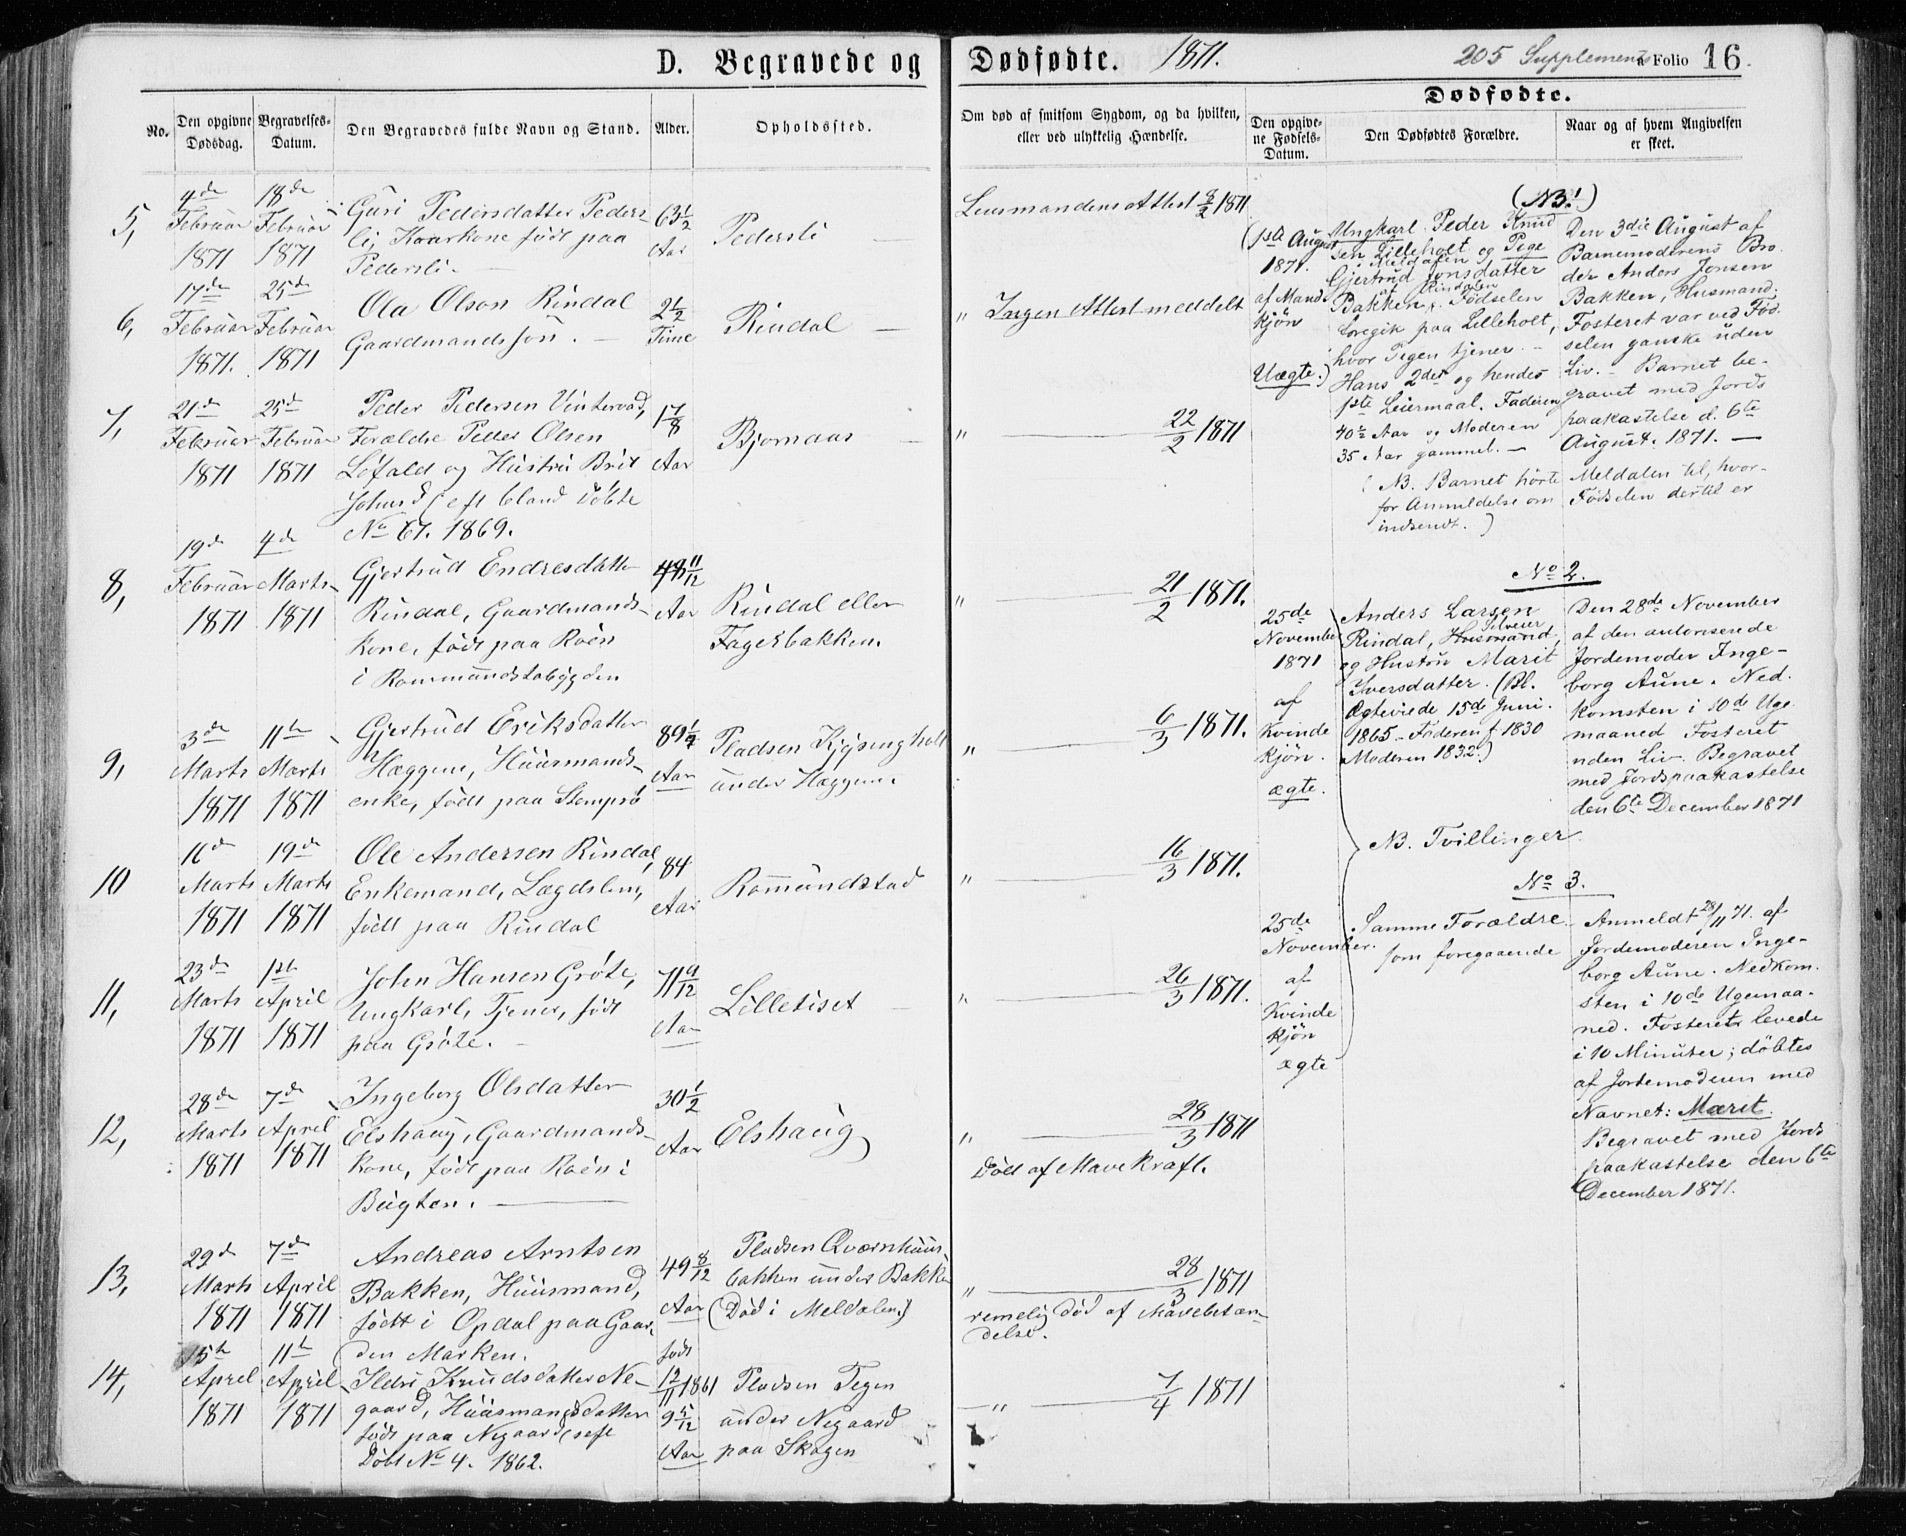 D. Begravede og Dødfødte. 1871. 205 Supplements Folio 16
No.
Den opgivne Dødsdag.
Begravelses-Datum.
Den Begravedes fulde Navn og Stand.
Alder.
Opholdssted.
Om død af smitsom Sygdom, og da hvilken, eller ved ulykkelig Hændelse.
Dødfødte.
Den opgivne Fødsels-Datum.
Den Dødfødtes Forældre.
Naar og af hvem Angivelsen er skeet.
5,
4de Februar 1871
18de Februar 1871
Guri Pedersdatter Peders-
li, Kaarkone født paa
Pedersli.
63 1/2 Aar
Pedersli
Lensmandens Attest 8/2 1871
6,
17de Februar 1871.
25de Februar 1871
Ola Olson Rindal
Gaardmandssøn.
2 1/2 Time
Rindal
" Ingen Attest meddelt
7,
21de Februar 1871
25de Februar 1871
Peder Pedersen Vintervad,
Forældre Peder Olsen
Løfald og Hustru Brit
Johnsd (eft bland Døbte
No 67. 1869.
1 7/8 Aar
Bjørnaas
" 22/2 1871
8,
19de Februar 1871
4de Marts 1871
Gjertrud Endresdatter
Rindal, Gaardmands-
kone, født paa Roën
i Rommundstabygden
48 11/12 Aar
Rindal eller
Fagerbakken.
" 21/2 1871.
9,
3de Marts 1871
11te Marts 1871
Gjertrud Eriksdatter
Hæggem, Huusmands-
enke, født paa Stemprø
89 1/2 Aar
Pladsen Kysingholt
under Hæggem.
" 6/3 1871.
10
16de Marts 1871
19de Marts 1871
Ole Andersen Rindal,
Enkemand, Lægdslem,
født paa Rindal
84 Aar
Romundstad
" 16/3 1871.
11,
23de Marts 1871
1ste April 1871
John Hansen Grøte,
Ungkarl, Tjener, født
paa Grøte.
71 9/12 Aar
Lilletiset
" 26/3 1871.
12,
28de Marts 1871
7de April 1871
Ingeborg Olsdatter
Elshaug, Gaardmands-
kone, født paa Roën i
Bugten.
30 1/2 Aar
Elshaug
" 28/3 1871
Død af Mavekræft.
13,
29de Marts 1871
7de April 1871
Andreas Arntsen
Bakken, Huusmand,
født i Opdal paa Gaar-
den Marken.
49 8/12 Aar
Pladsen Qværnhuus-
bakken under Bakken
(Død i Meldalen)
" 28/3 1871
remelig død af Mavebetæn-
delse.
14,
5te April 1871
11te April 1871
Ildri Knudsdatter Ne-
gaard, Huusmandsdatter
født paa Negaard (see
Døbt No 4. 1862.
født
12/11 1861
9 5/12
Aar
Pladsen Tegen
under Negaard
paa Skogen
" 7/4 1871
(No. 1)
(1ste August
1871.
af Mand-
kjøn
Uægte.)
Ungkarl Peder Knud
sen Lilleholt og Pige
i Meldalen
Gjertrud Jonsdatter
Rindalen
Bakken. Fødselen
foregik paa Lilleholt,
hvor Pigen tjener.
Hans 2det og hendes
1ste Leiermaal. Faderen
40 1/2 Aar og Moderen
35 Aar gammel.
Den 3die August af
Barnemoderens Bro-
der Anders Jonsen
Bakken, Husmand.
Fosteret var ved Fød-
selen ganske uden
Liv. Barnet be-
gravet med Jords
paakastelse d. 6te
August. 1871.
(NB. Barnet hørte Meldalen til, hvor-
for Anmeldelse om Fødselen dertil er
indsendt.)
No 2.
25de
November
1871
af
Kvinde
kjøn.
ægte.
Anders Larsen
Selveier
Rindal, Husmand,
og Hustru Marit
Iversdatter. (Bl.
Ægteviede 15de Juni
1865 - Faderen f 1830
Moderen 1832.)
Den 28de November
af den autoriserede
Jordemoder Inge-
borg Aune. Ned-
komsten i 10de Uge-
maaned Fosteret
uden Liv. Begravet
med Jordspaakastelse
den 6te December 1871
NB. Tvillinger.
No 3.
25de
November.
af
Kvinde
kjøn
ægte
Samme Forældre
som foregaaende
Anmeldt 28/11 71. af
Jordemoderen Inge-
borg Aune. Nedkom-
sten i 10de Ugemaa-
ned. Fosteret levede
i 10 Minuter; døbtes
af Jordemoderen med
Navnet: Marit.
Begravet med Jords
paakastelse den 6te
December 1871.